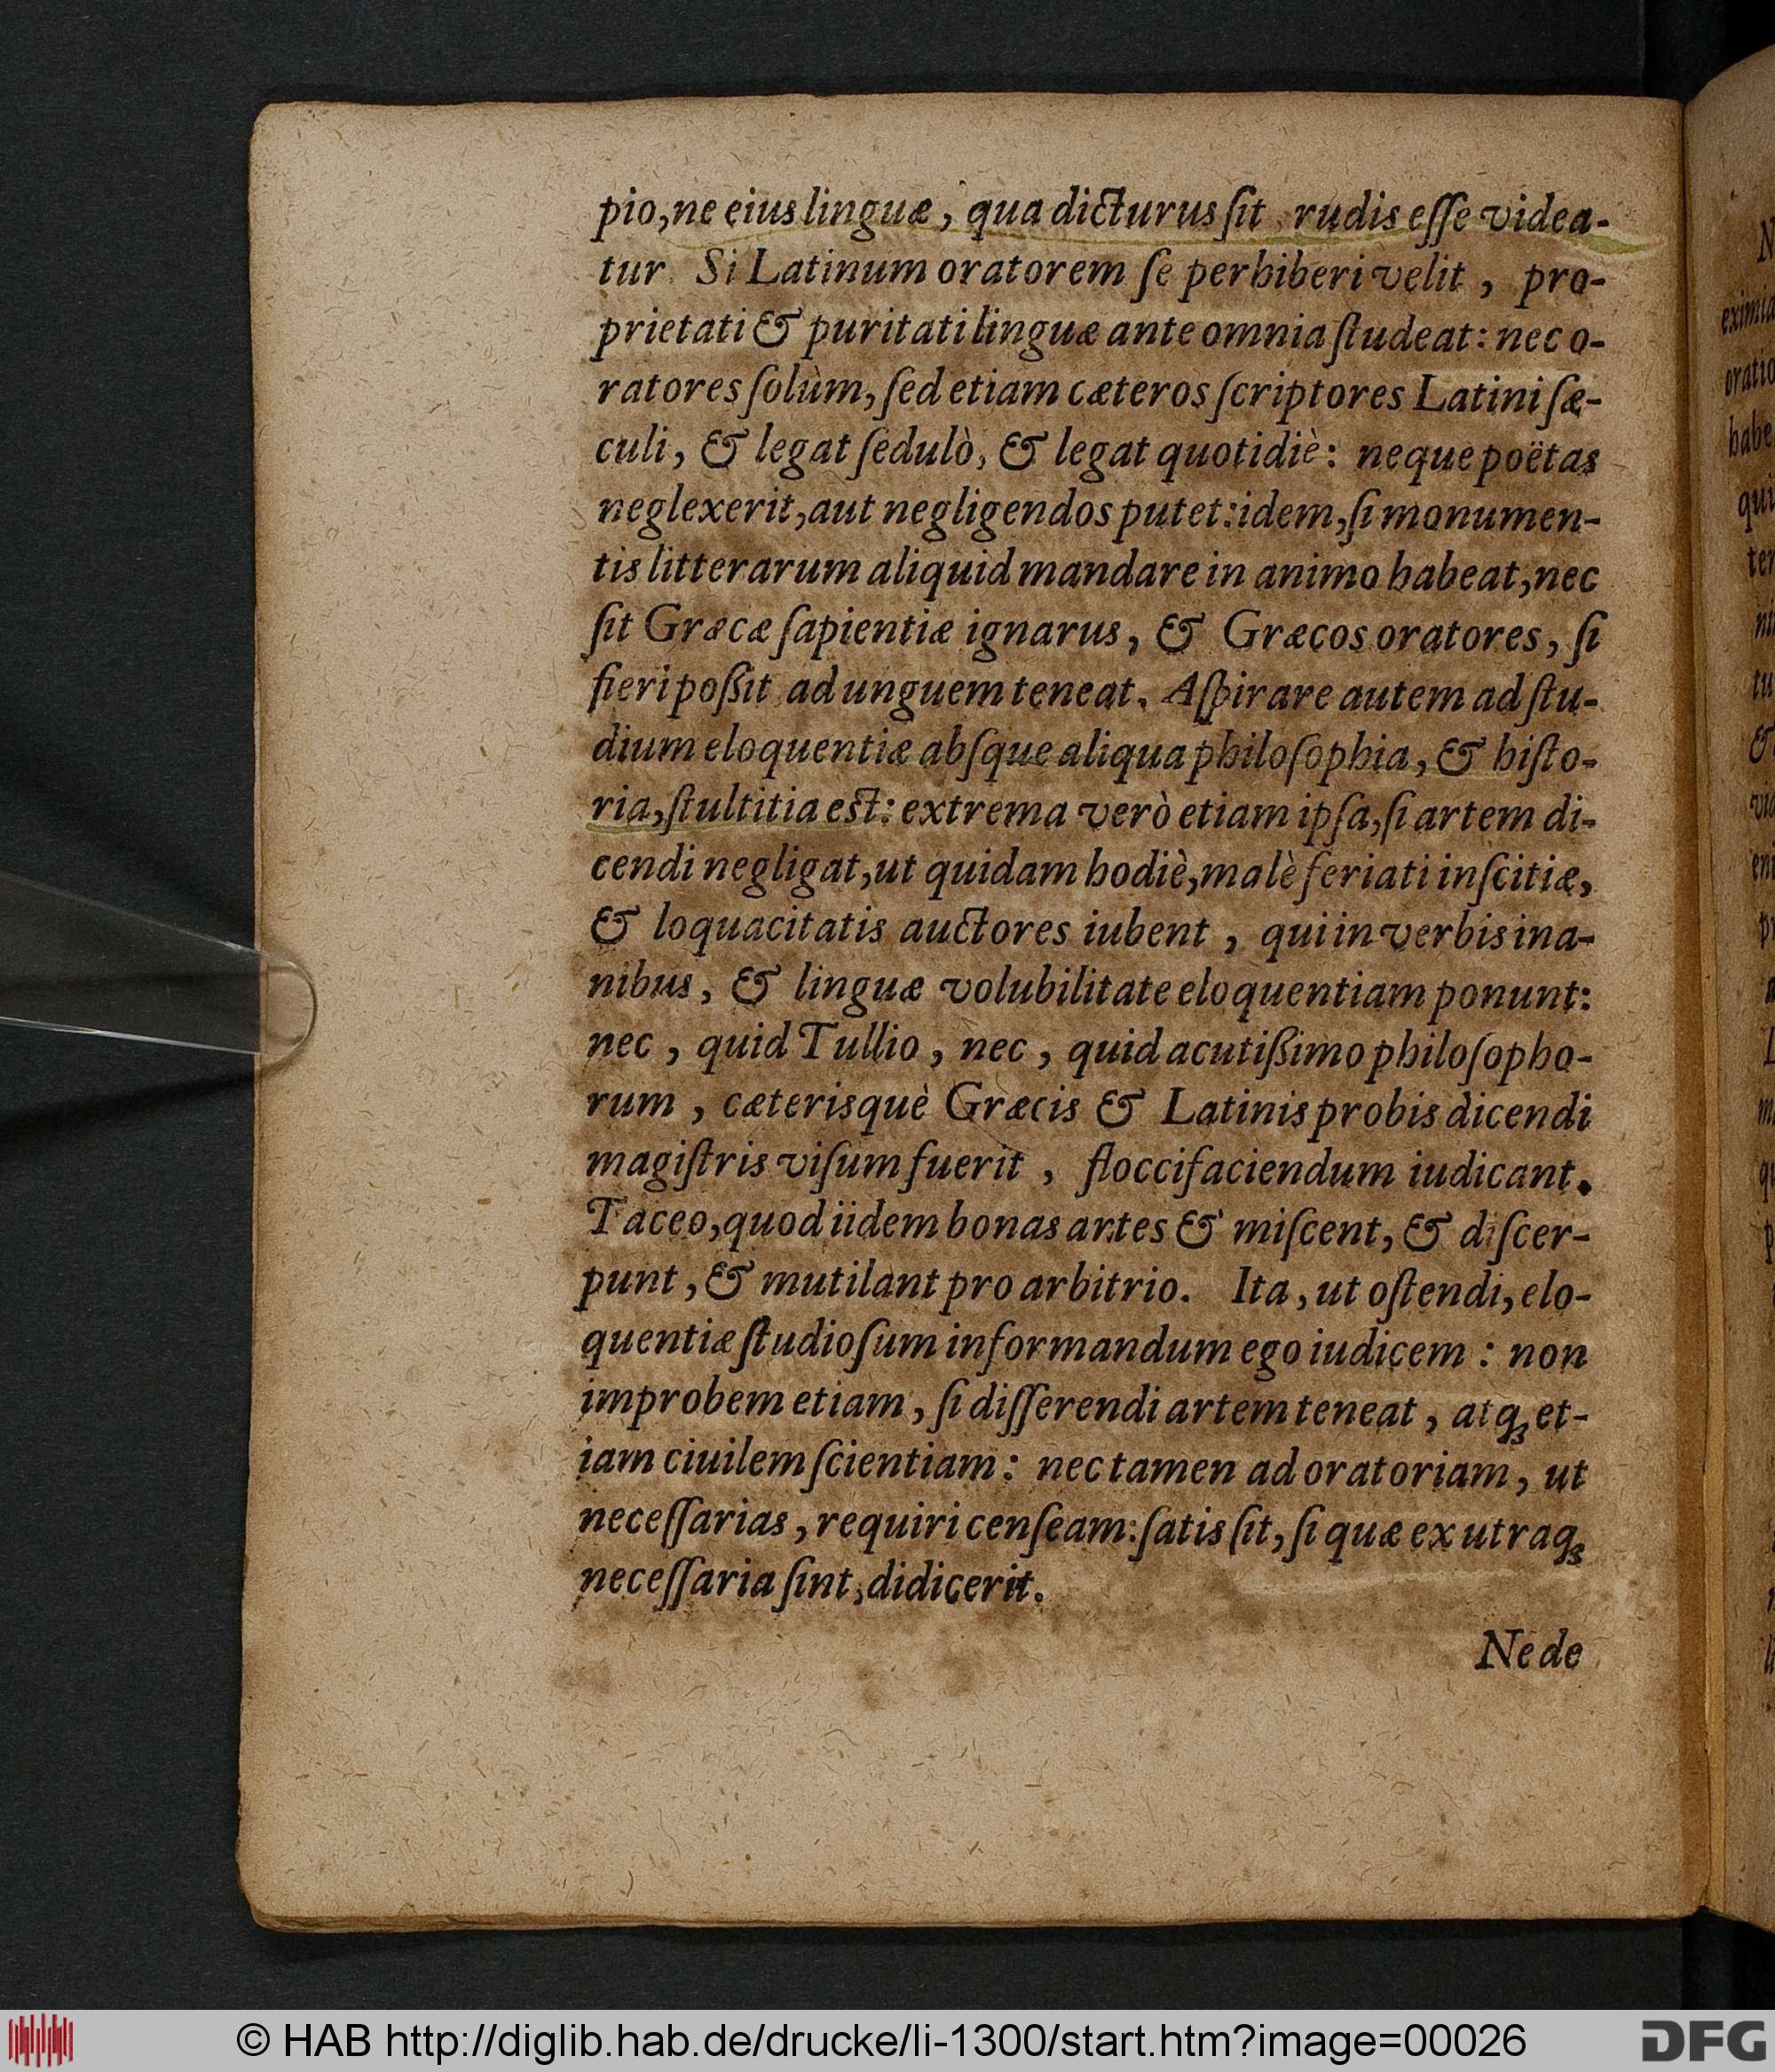 pio, ne eius linguæ, qua dicturus ſit rudis eſſe videa-
tur. Si Latinum oratorem ſe perhiberi velit, pro-
prietati & puritati linguæ ante omnia ſtudeat: nec o-
ratores ſolùm, ſed etiam cæteros ſcriptores Latini ſæ-
culi, & legat ſedulò, & legat quotidiè: neque poëtas
neglexerit, aut negligendos putet: idem, ſi monumen-
tis litterarum aliquid mandare in animo habeat, nec
ſit Græcæ ſapientiæ ignarus, & Græcos oratores, ſi
fieri poßit ad unguem teneat. Aſpirare autem ad ſtu-
dium eloquentiæ abſque aliqua philoſophia, & hiſto-
ria, ſtultitia eſt: extrema verò etiam ipſa, ſi artem di-
cendi negligat, ut quidam hodiè, malè feriati inſcitiæ,
& loquacitatis auctores iubent, qui in verbis ina-
nibus, & linguæ volubilitate eloquentiam ponunt:
nec, quid Tullio, nec, quid acutißimo philoſopho-
rum, cæterisquè Græcis & Latinis probis dicendi
magiſtris viſum fuerit, floccifaciendum iudicant.
Taceo, quod iidem bonas artes & miſcent, & diſcer-
punt, & mutilant pro arbitrio. Ita, ut oſtendi, elo-
quentiæ ſtudioſum informandum ego iudicem: non
improbem etiam, ſi diſſerendi artem teneat, atq₃ et-
iam ciuilem ſcientiam: nec tamen ad oratoriam, ut
neceſſarias, requiri cenſeam: ſatis ſit, ſi quæ ex utraq₃
neceſſaria ſint, didicerit.
Ne de
© HAB http://diglib.hab.de/drucke/li-1300/start.htm?image=00026
DFG